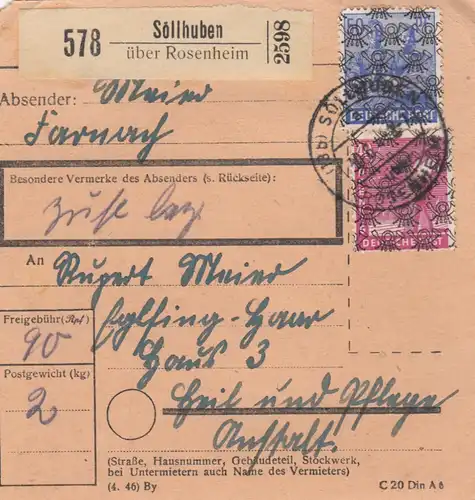 578
Söllhuben
über Rosenheim
2598
Absender: Meier
Farnach
Besondere Vermerke des Absenders (s. Rückseite):
An Rupert Meier
Eglfing-Haar
Haus 3
Heil und Pflege
Anstalt.
Freigebühr (Rpf)
90
Postgewicht (kg)
2
(Straße, Hausnummer, Gebäudeteil, Stockwerk,
bei Untermietern auch Name des Vermieters)
(4. 46) By
C 20 Din A 6
DEUTSCHE POST
DEUTSCHE POST